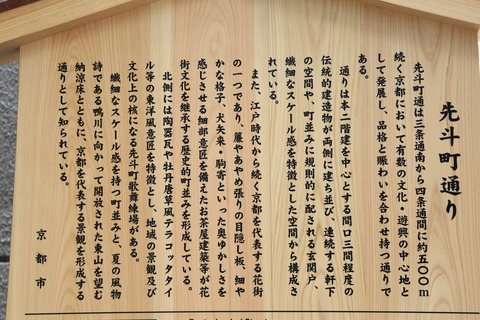 先斗町通り
先斗町通は三条通南から四条通間に約五〇〇m
続く京都において有数の文化・遊興の中心地と
して発展し、品格と賑わいを合わせ持つ通りで
ある。
通りは本二階建を中心とする間口三間程度の
伝統的建造物が両側に建ち並び、連続する軒下
の空間や、町並みに規則的に配される玄関戸、
繊細なスケール感を特徴とした空間から構成さ
れている。
また、江戸時代から続く京都を代表する花街
の一つであり、簾やあやめ張りの目隠し板、細や
かな格子、犬矢来・駒寄といった奥ゆかしさを
感じさせる細部意匠を備えたお茶屋建築等が花
街文化を継承する歴史的町並みを形成している。
北側には陶器瓦や牡丹唐草風テラコッタタイ
ル等の東洋風意匠を特徴とし、地域の景観及び
文化上の核になる先斗町歌舞練場がある。
繊細なスケール感を持つ町並みと、夏の風物
詩である鴨川に向かって開放された東山を望む
納涼床とともに、京都を代表する景観を形成する
通りとして知られている。
京都市